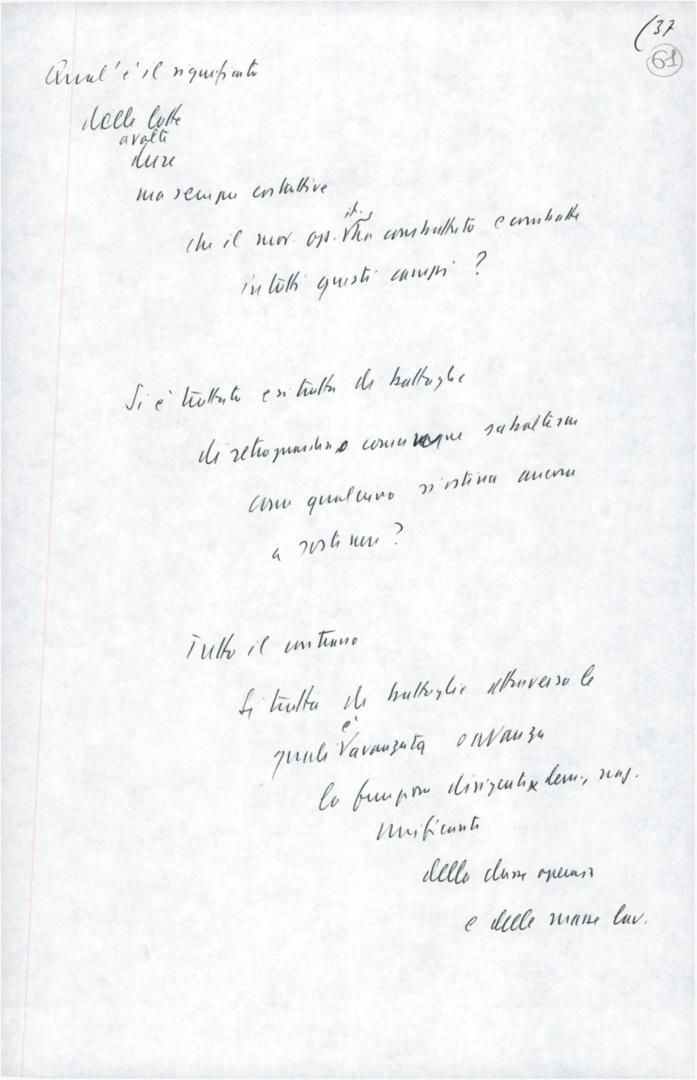 (37
61
Qual'è il significato
delle lotte
a volte
dure
ma sempre costruttive
it.
che il mov. op. ha combattuto e combatte
in tutti questi campi?
Si è trattato e si tratta di battaglie
di retroguardia o comunque subalterne
come qualcuno si ostina ancora
a sostenere?
Tutto il contrario
Si tratta di battaglie attraverso le
è
quali avanzata e avanza
la funzione dirigente dem., naz.
unificante
della classe operaia
e delle masse lav.